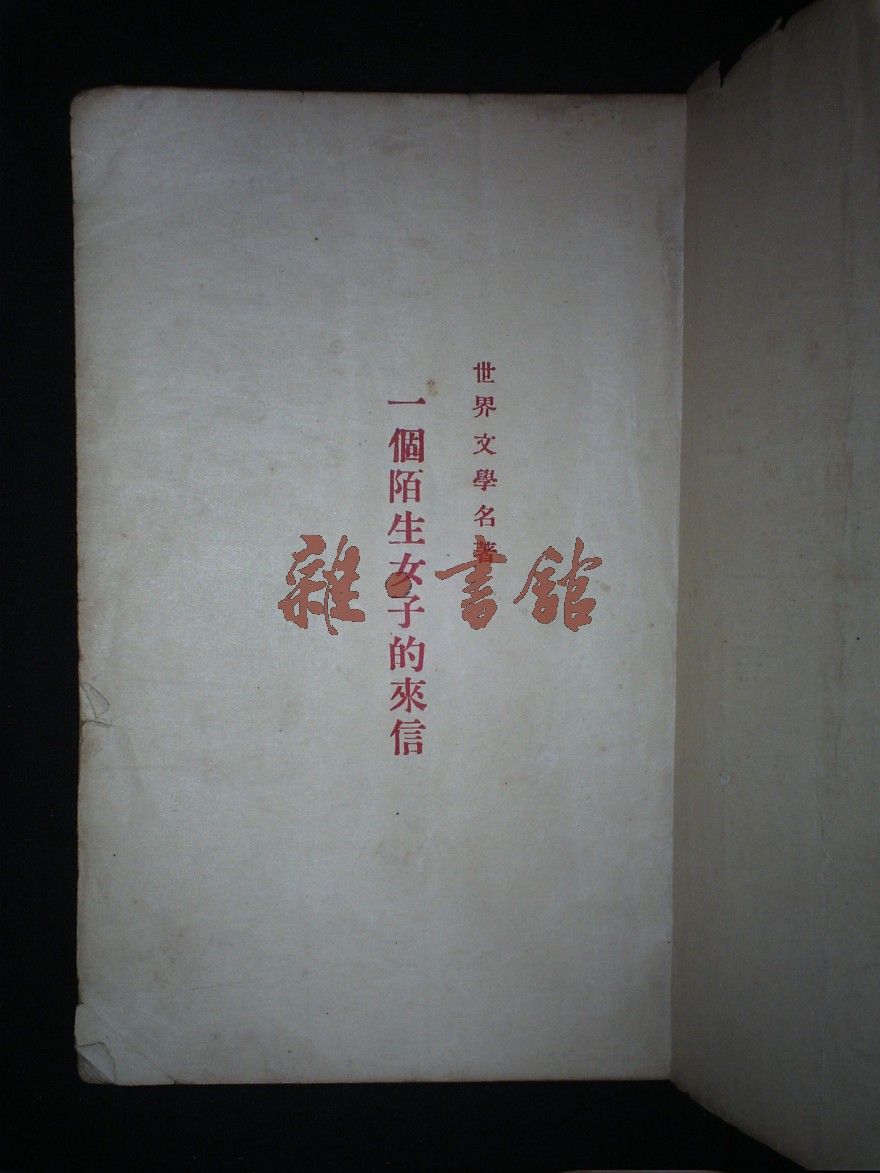 世界文學名著
一個陌生女子的來信
雜·書館